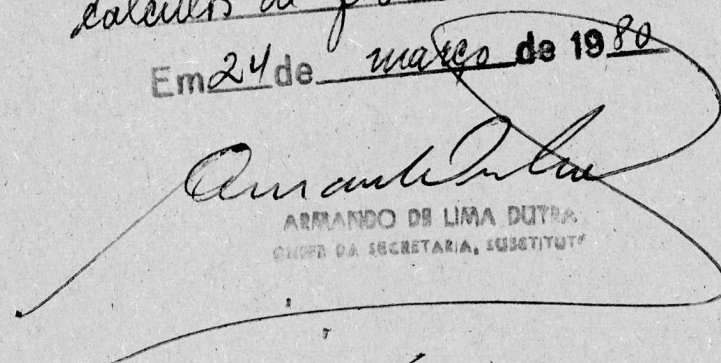 calculos de
Em 24 de março de 1980
ARMANDO DE LIMA DUTRA
CHEFE DA SECRETARIA, SUBSTITUTO